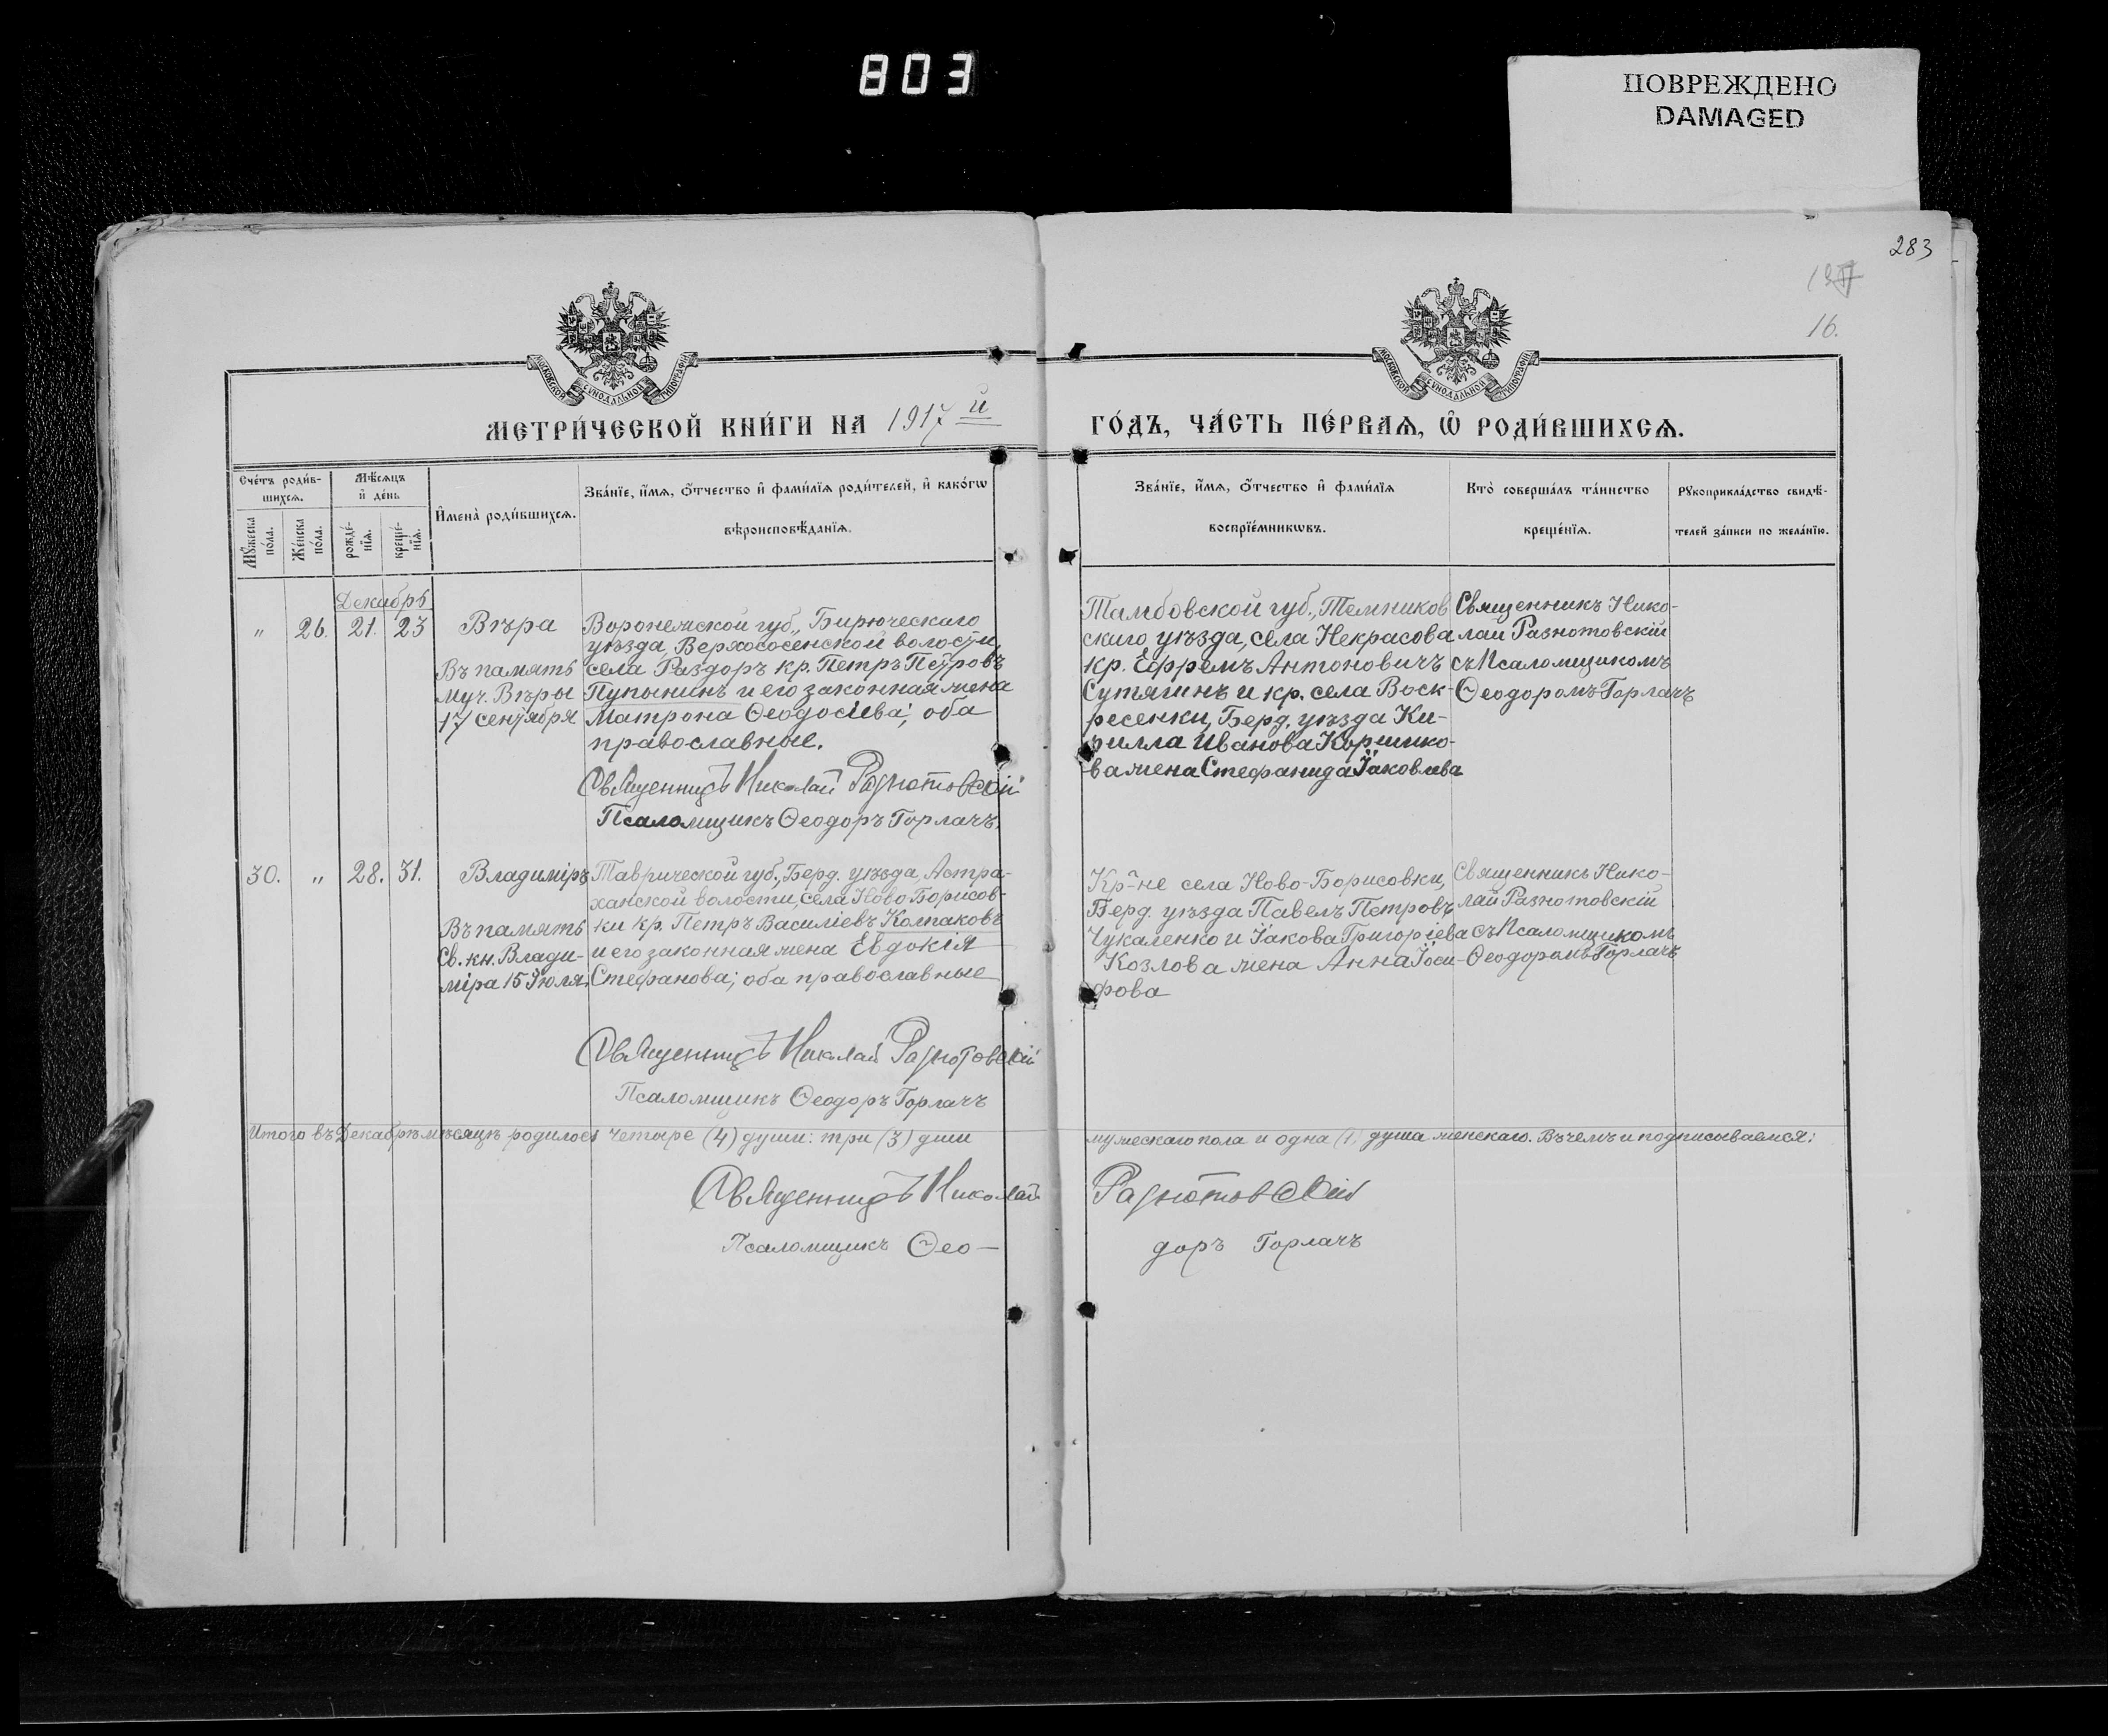 803
ПОВРЕЖДЕНО
DAMAGED
283
16.
МОСКОВСКОЙ СѴНОДАЛЬНОЙ ТИПОГРАФІИ
МОСКОВСКОЙ СѴНОДАЛЬНОЙ ТИПОГРАФІИ
МЕТРИ́ЧЕСКОЙ КНИ́ГИ НА 1917 й
ГО́ДЪ, ЧА́СТЬ ПЕ́РВАѦ, Ѿ РОДИ́ВШИХСѦ.
Сче́тъ роди́в-
шихсѧ.
Мꙋ́жеска по́ла.
Же́нска по́ла.
Мѣ́сѧцъ
и҆ де́нь
рожде́-
нїѧ.
креще́-
нїѧ.
И҆мена̀ роди́вшихсѧ.
Зва́нїе, и҆́мѧ, ѻ҆́тчество и҆ фами́лїѧ роди́телей, и҆ како́гѡ
вѣроисповѣ́данїѧ.
Зва́нїе, и҆́мѧ, ѻ҆́тчество и҆ фами́лїѧ
воспрїе́мникѡвъ.
Кто̀ соверша́лъ та́инство
креще́нїѧ.
Рꙋкоприкла́дство свидѣ́-
телей за́писи по жела́нїю.
Декабрь
" 26. 21. 23 Вѣра
Въ память
муч. Вѣры
17 сентября
Воронежской губ., Бирюческаго
уѣзда, Верхососенской волости,
села Раздоръ кр. Петръ Петровъ
Пупынинъ и его законная жена
Матрона Ѳеодосіева; оба
православные.
Священникъ Николай Разнотовскій
Псаломщикъ Ѳеодоръ Горлачъ.
Тамбовской губ., Темников
скаго уѣзда, села Некрасова
кр. Ефремъ Антоновичъ
Сутягинъ и кр. села Воск-
ресенки, Берд. уѣзда Ки-
рилла Иванова Коршико-
ва жена Стефанида Іаковлева
Священникъ Нико-
лай Разнотовскій
съ Псаломщикомъ
Ѳеодоромъ Горлачъ
30. " 28. 31. Владиміръ
Въ память
Св. кн. Влади-
міра 15 Іюля.
Таврической губ., Берд. уѣзда, Астра-
ханской волости, села Ново Борисов-
ки кр. Петръ Василіевъ Колпаковъ
и его законная жена Евдокія
Стефанова; оба православные
Священникъ Николай Разнотовскій
Псаломщикъ Ѳеодоръ Горлачъ
Кр-не села Ново-Борисовки,
Берд. уѣзда Павелъ Петровъ
Чукаленко и Іакова Григоріева
Козлова жена Анна Іоси-
фова
Священникъ Нико-
лай Разнотовскій
съ Псаломщикомъ
Ѳеодоромъ Горлачъ
Итого въ Декабрѣ мѣсяцѣ родилось четыре (4) души: три (3) души мужескаго пола и одна (1) душа женскаго. Въ чемъ и подписываемся:
Священникъ Николай Разнотовскій
Псаломщикъ Ѳео-
доръ Горлачъ